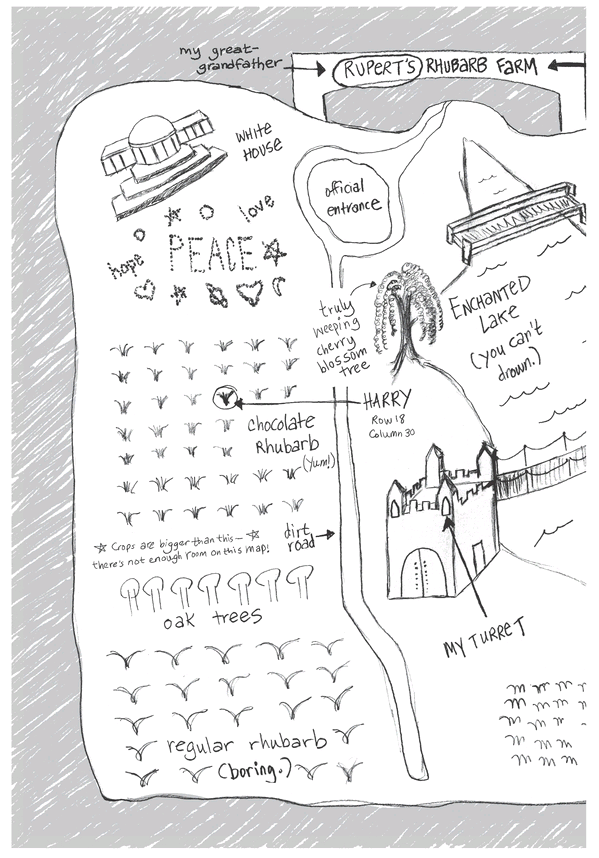 my great-
grandfather
RUPERT'S RHUBARB FARM
WHITE
HOUSE
official
entrance
love
hope
PEACE
truly
weeping
cherry
blossom
tree
ENCHANTED
LAKE
(you can't
drown.)
HARRY
Row 18
Column 30
chocolate
Rhubarb
(Yum!)
dirt
road
☆ Crops are bigger than this— ☆
there's not enough room on this map!
oak trees
MY TURRET
regular rhubarb
(boring.)